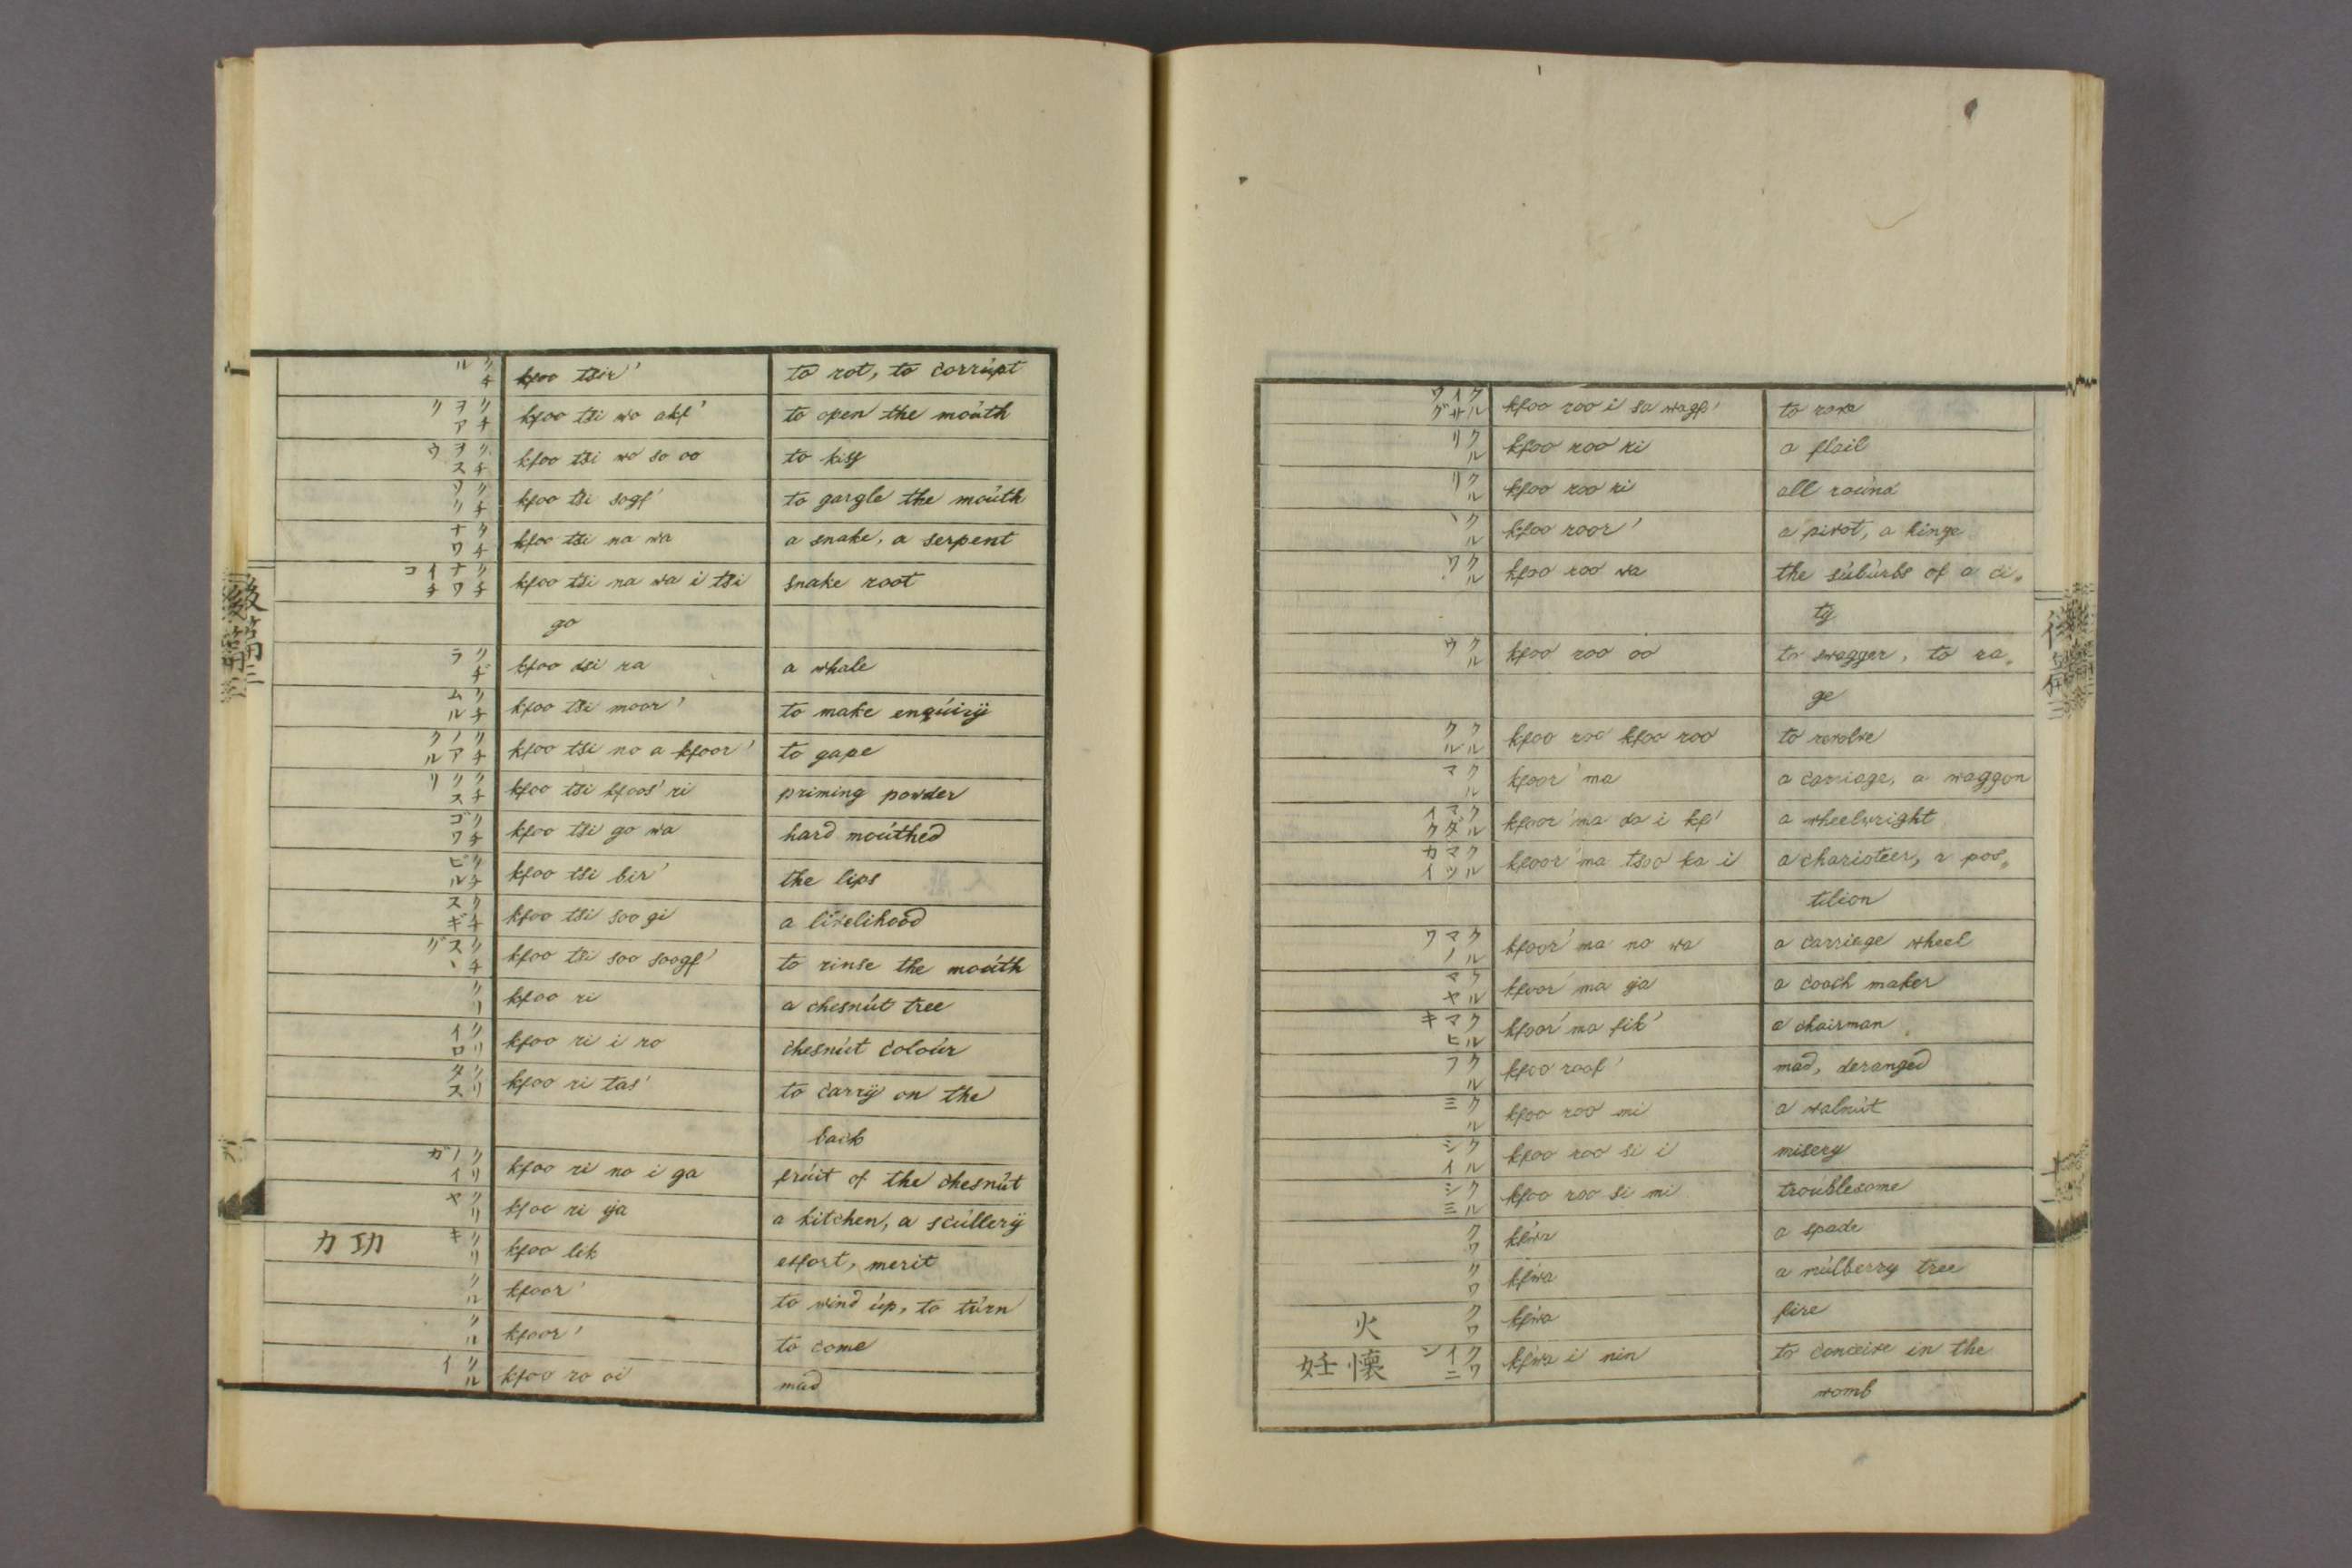 クチル kfoo tsir' to rot, to corrúpt
クチヲアク kfoo tsi wo akf' to open the moúth
クチヲスウ kfoo tsi wo so oo to kiss
クチソソグ kfoo tsi sogf' to gargle the moúth
クチナワ kfoo tsi na wa a snake, a serpent
クチナワイチコ kfoo tsi na wa i tsi snake root
go
クヂラ kfoo dsi ra a whale
クチムル kfoo tsi moor' to make enqúirÿ
クチノアクル kfoo tsi no a kfoor' to gape
クチクスリ kfoo tsi kfoos' ri priming powder
クチゴワ kfoo tsi go wa hard moúthed
クチビル kfoo tsi bir' the lips
クチスギ kfoo tsi soo gi a livelihood
クチスヽグ kfoo tsi soo soogf' to rinse the moúth
クリ kfoo ri a chesnút tree
クリイロ kfoo ri i ro chesnút coloúr
クリタス kfoo ri tas' to carrÿ on the
back
クリノイガ kfoo ri no i ga frúit of the chesnút
クリヤ kfoo ri ya a kitchen, a scúllerÿ
功力 クリキ kfoo lik effort, merit
クル kfoor' to wind úp, to túrn
クル kfoor' to come
クルイ kfoo ro oi mad
クルイサワグ kfoo roo i sa wagf' to rove
クルリ kfoo roo ri a flail
クルリ kfoo roo ri all roúnd
クルヽ kfoo roor' a pivot, a hinge
クルワ kfoo roo wa the súbúrbs of a ci„
ty
クルウ kfoo roo oo to swagger, to ra„
ge
クルクル kfoo roo kfoo roo to revolve
クルマ kfoor' ma a carriage, a waggon
クルマダイク kfoor' ma da i kf' a wheelwright
クルマツカイ kfoor' ma tsoo ka i a charioteer, a pos„
tilion
クルマノワ kfoor' ma no wa a carriage wheel
クルマヤ kfoor' ma ya a coach maker
クルマヒキ kfoor' ma fik' a chairman
クルフ kfoo roof' mad, deranged
クルミ kfoo roo mi a walnút
クルシイ kfoo roo si i misery
クルシミ kfoo roo si mi troúblesome
クワ kfwa a spade
クワ kfwa a múlberry tree
火 クワ kfwa fire
懷妊 クワイニン kfwa i nin to conceive in the
womb